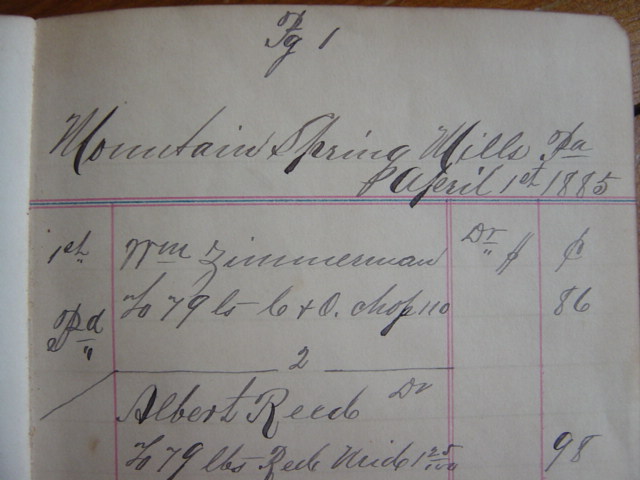 Pg 1
Mountain Spring Mills Pa
April 1st 1885
1st Wm Zimmerman Dr $ ¢
To 79 ls C + O. Chop 110 86
Pd "
2
Albert Reed Dr
To 79 lbs Red 1 25/100 98